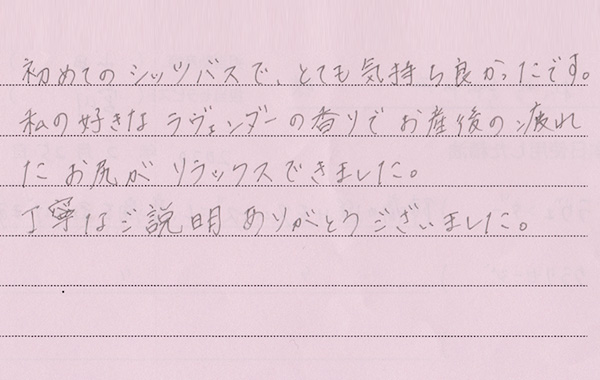 初めてのシッツバスで、とても気持ち良かったです。
私の好きなラヴェンダーの香りでお産後の疲れ
たお尻がリラックスできました。
丁寧なご説明ありがとうございました。